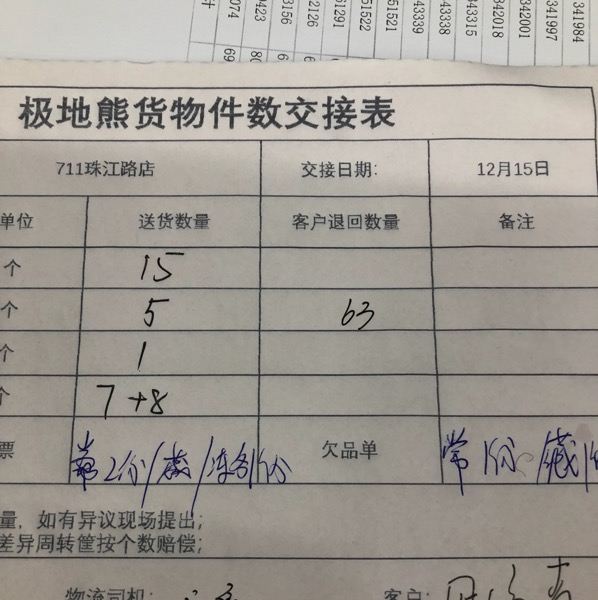 341984
341997
342001
342018
43315
43338
43339
51521
51522
61291
2126
3156
0423
074
计
极地熊货物件数交接表
711珠江路店 交接日期: 12月15日
单位 送货数量 客户退回数量 备注
个 15
个 5 63
个 1
个 7+8
票 常2份/ 欠品单 常1份
量，如有异议现场提出;
差异周转筐按个数赔偿;
物流司机: 客户: